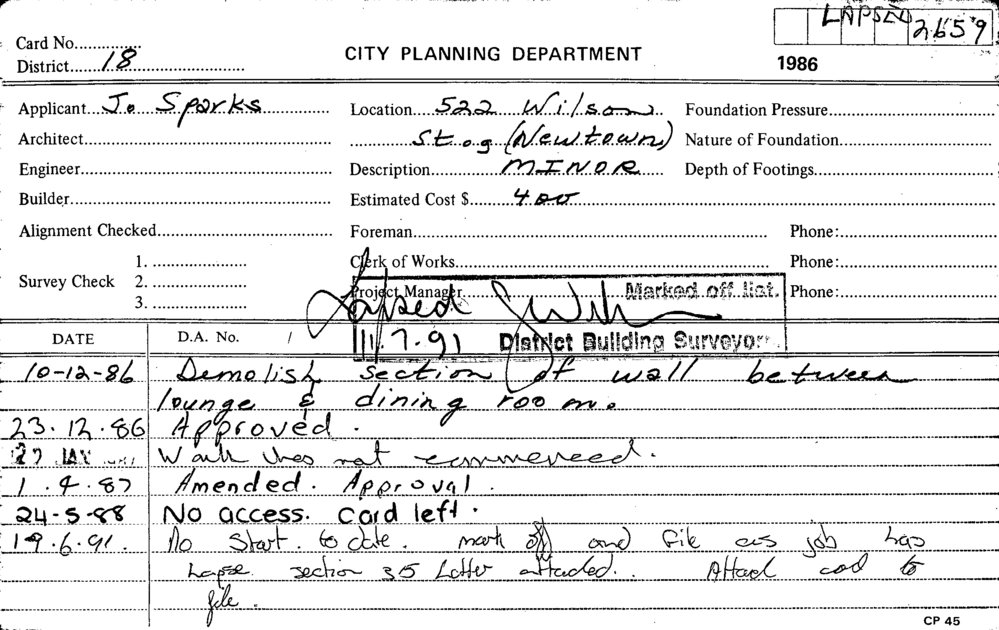 LAPSED 2659
Card No.
District 18
CITY PLANNING DEPARTMENT
1986
Applicant J. Sparks Location 522 Wilson Foundation Pressure
Architect St. (Newtown) Nature of Foundation
Engineer Description MINOR Depth of Footings
Builder Estimated Cost $ 400
Alignment Checked Foreman Phone:
1. Clerk of Works Phone:
Survey Check 2. Project Manager Marked off list. Phone:
3. Lapsed
DATE D.A. No. / 11.7.91 District Building Surveyor
10-12-86 Demolish section of wall between
lounge & dining room.
23.12.86 Approved.
27 JAN Work has not commenced.
1.4.87 Amended. Approval.
24-5-88 No access. Card left.
19.6.91. No Start. to date. mark off and file as job has
Lapse section 35 Letter attached. Attach card to
file.
CP 45